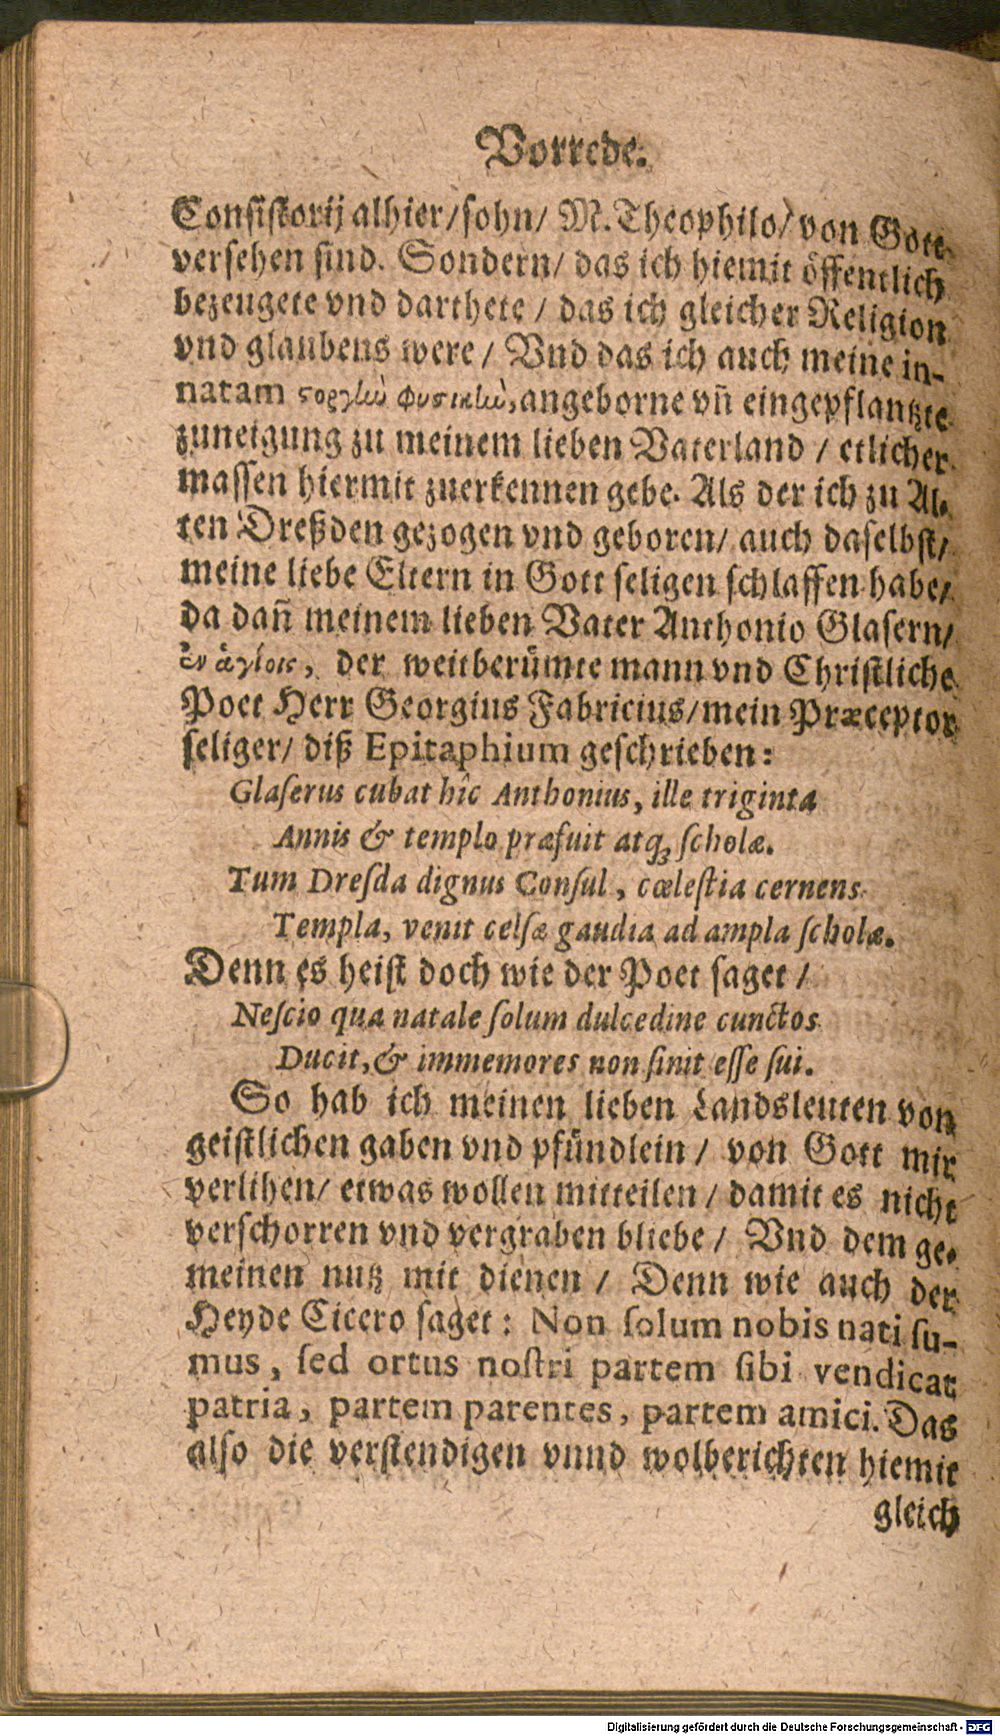 Vorrede.
Consistorij alhier/sohn/ M. Theophilo/ von Gott
versehen sind. Sondern/ das ich hiemit öffentlich
bezeugete vnd darthete / das ich gleicher Religion
vnd glaubens were / Vnd das ich auch meine in-
natam ϛοργὴν φυσικὴν, angeborne vn̄ eingepflantzte
zuneigung zu meinem lieben Vaterland / etlicher
massen hiermit zuerkennen gebe. Als der ich zu Al-
ten Dreßden gezogen vnd geboren/ auch daselbst/
meine liebe Eltern in Gott seligen schlaffen habe/
da dañ meinem lieben Vater Anthonio Glasern/
ἐν ἁγίοις, der weitberümte mann vnd Christliche
Poet Herr Georgius Fabricius/mein Præceptor
seliger/ diß Epitaphium geschrieben:
Glaserus cubat hîc Anthonius, ille triginta
Annis & templo præfuit atq; scholæ.
Tum Dresda dignus Consul, cœlestia cernens
Templa, venit celsæ gaudia ad ampla scholæ.
Denn es heist doch wie der Poet saget /
Nescio qua natale solum dulcedine cunctos
Ducit, & immemores non sinit esse sui.
So hab ich meinen lieben Landsleuten von
geistlichen gaben vnd pfündlein / von Gott mir
verlihen/ etwas wollen mitteilen / damit es nicht
verschorren vnd vergraben bliebe / Vnd dem ge-
meinen nutz mit dienen / Denn wie auch der
Heyde Cicero saget: Non solum nobis nati su-
mus, sed ortus nostri partem sibi vendicat
patria, partem parentes, partem amici. Das
also die verstendigen vnnd wolberichten hiemit
gleich
Digitalisierung gefördert durch die Deutsche Forschungsgemeinschaft - DFG